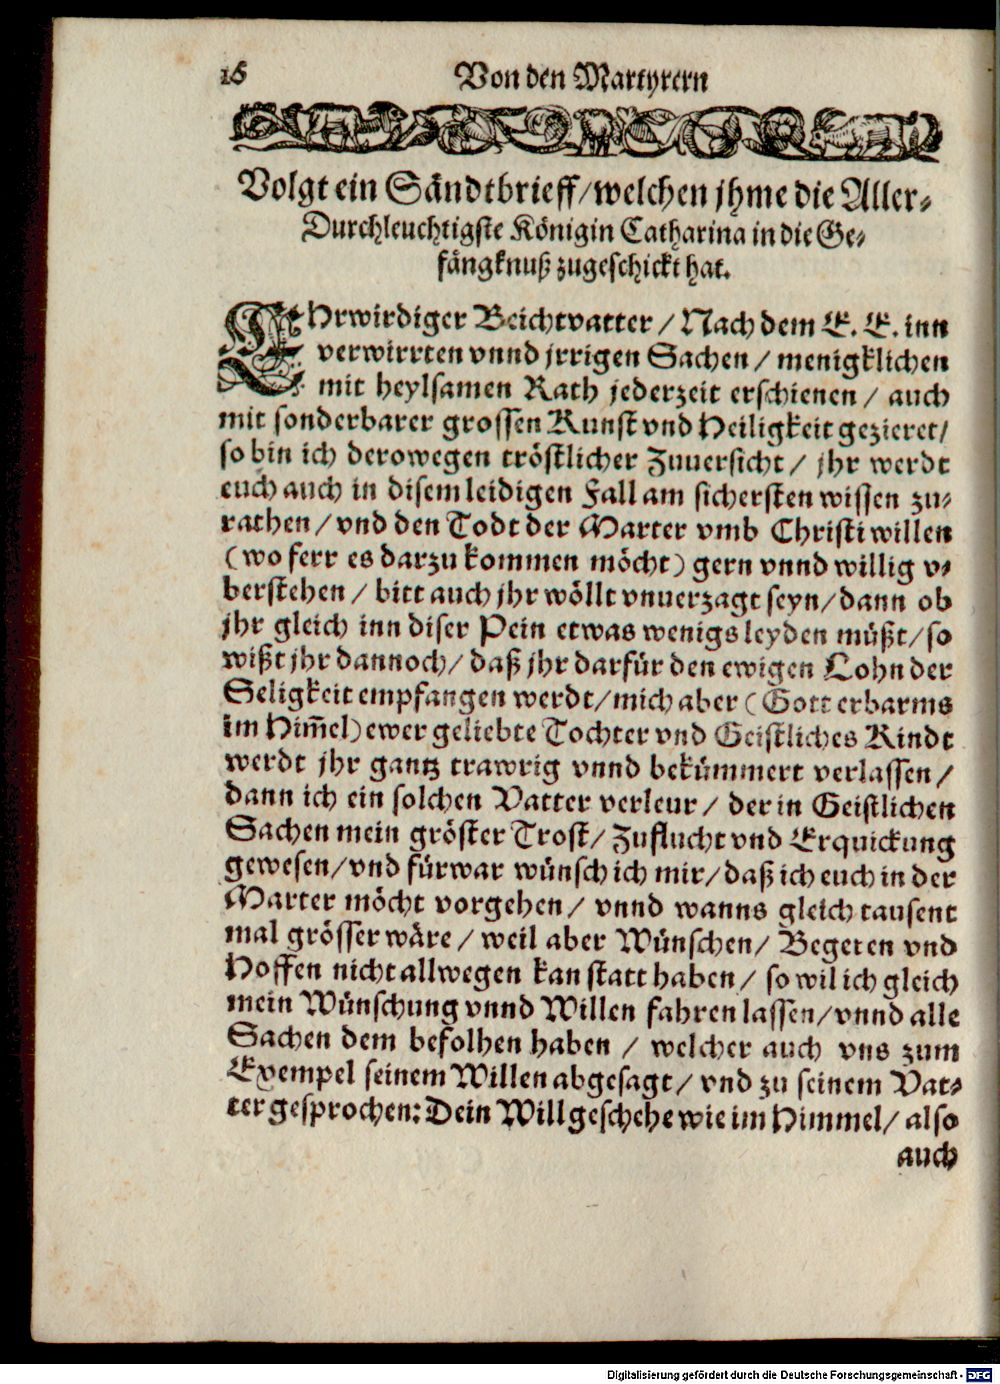 16
Von den Martyrern
Volgt ein Sändtbrieff/welchen jhme die Aller-
Durchleuchtigste Königin Catharina in die Ge-
fängknuß zugeschickt hat.
EHrwirdiger Beichtvatter / Nach dem E. E. inn
verwirrten vnnd jrrigen Sachen / menigklichen
mit heylsamen Rath jederzeit erschienen / auch
mit sonderbarer grossen Kunst vnd Heiligkeit gezieret/
so bin ich derowegen tröstlicher Zuuersicht / jhr werdt
euch auch in disem leidigen Fall am sichersten wissen zu-
rathen / vnd den Todt der Marter vmb Christi willen
(wo ferr es darzu kommen möcht) gern vnnd willig v-
berstehen / bitt auch jhr wöllt vnuerzagt seyn/dann ob
jhr gleich inn diser Pein etwas wenigs leyden müßt/so
wißt jhr dannoch/ daß jhr darfür den ewigen Lohn der
Seligkeit empfangen werdt/mich aber (Gott erbarms
im Him̃el) ewer geliebte Tochter vnd Geistliches Kindt
werdt jhr gantz trawrig vnnd bekümmert verlassen /
dann ich ein solchen Vatter verleur / der in Geistlichen
Sachen mein gröster Trost/ Zuflucht vnd Erquickung
gewesen/vnd fürwar wünsch ich mir/daß ich euch in der
Marter möcht vorgehen / vnnd wanns gleich tausent
mal grösser wäre / weil aber Wünschen/ Begeren vnd
Hoffen nicht allwegen kan statt haben / so wil ich gleich
mein Wünschung vnnd Willen fahren lassen/vnnd alle
Sachen dem befolhen haben / welcher auch vns zum
Exempel seinem Willen abgesagt / vnd zu seinem Vat-
ter gesprochen: Dein Will geschehe wie im Himmel/ also
auch
Digitalisierung gefördert durch die Deutsche Forschungsgemeinschaft - DFG